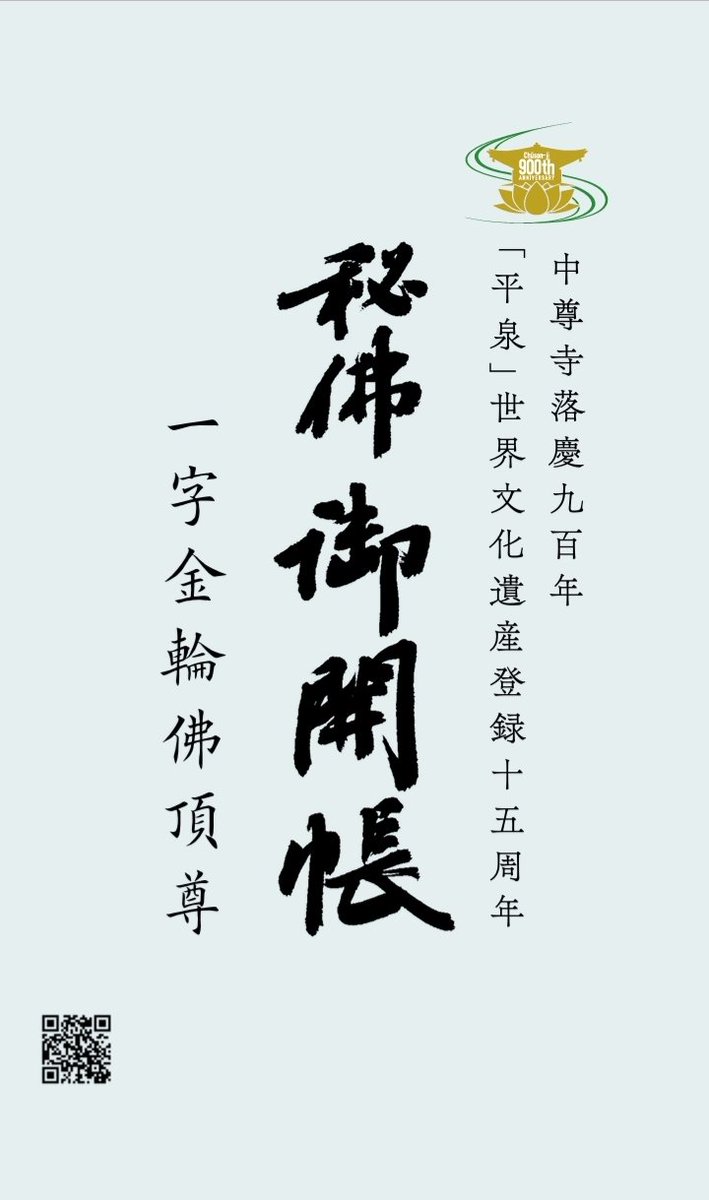 Chūson-ji
900th
ANNIVERSARY
中尊寺落慶九百年
「平泉」世界文化遺産登録十五周年
秘佛御開帳
一字金輪佛頂尊